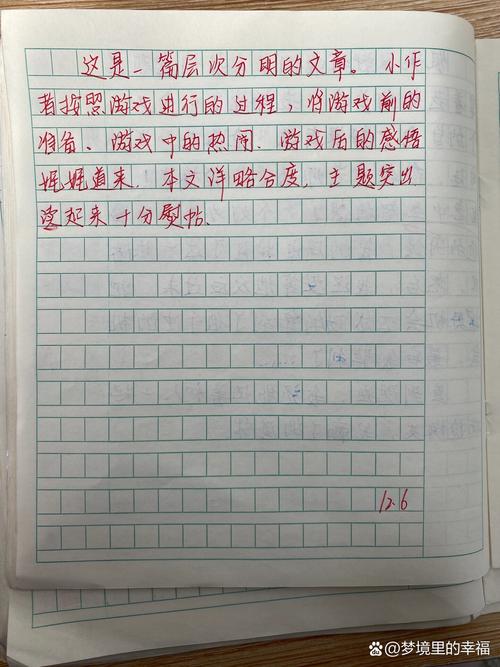 这是一篇层次分明的文章。小作
者按照游戏进行的过程，将游戏前的
准备、游戏中的热闹、游戏后的感悟
娓娓道来。本文详略合度，主题突出
读起来十分熨帖.
12.6
梦境里的幸福